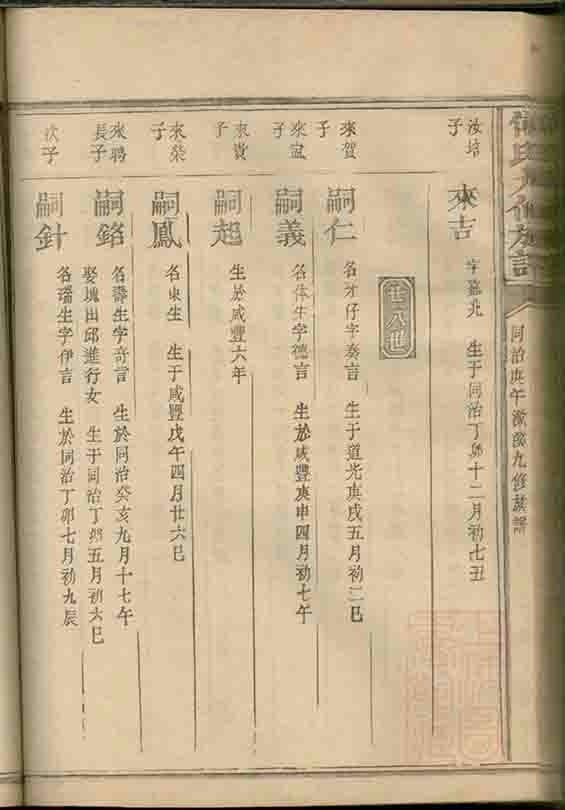 氏九修族譜
同治庚午激後九修族譜
汝培子
來吉
字蕴北 生于同治丁卯十二月初七丑
廿八世
來賀子
嗣仁
名才仔字奏言 生于道光庚戌五月初二巳
來宣子
嗣義
名体生字德言 生於咸豐庚申四月初七午
來貴子
嗣起
生於咸豐六年
來榮子
嗣鳳
名東生 生于咸豐戊午四月廿六巳
來聘長子
嗣銘
名壽生字奇言 生於同治癸亥九月十七午
娶塊田邱進行女 生于同治丁卯五月初六巳
次子
嗣針
名瑞生字伊言 生於同治丁卯七月初九辰